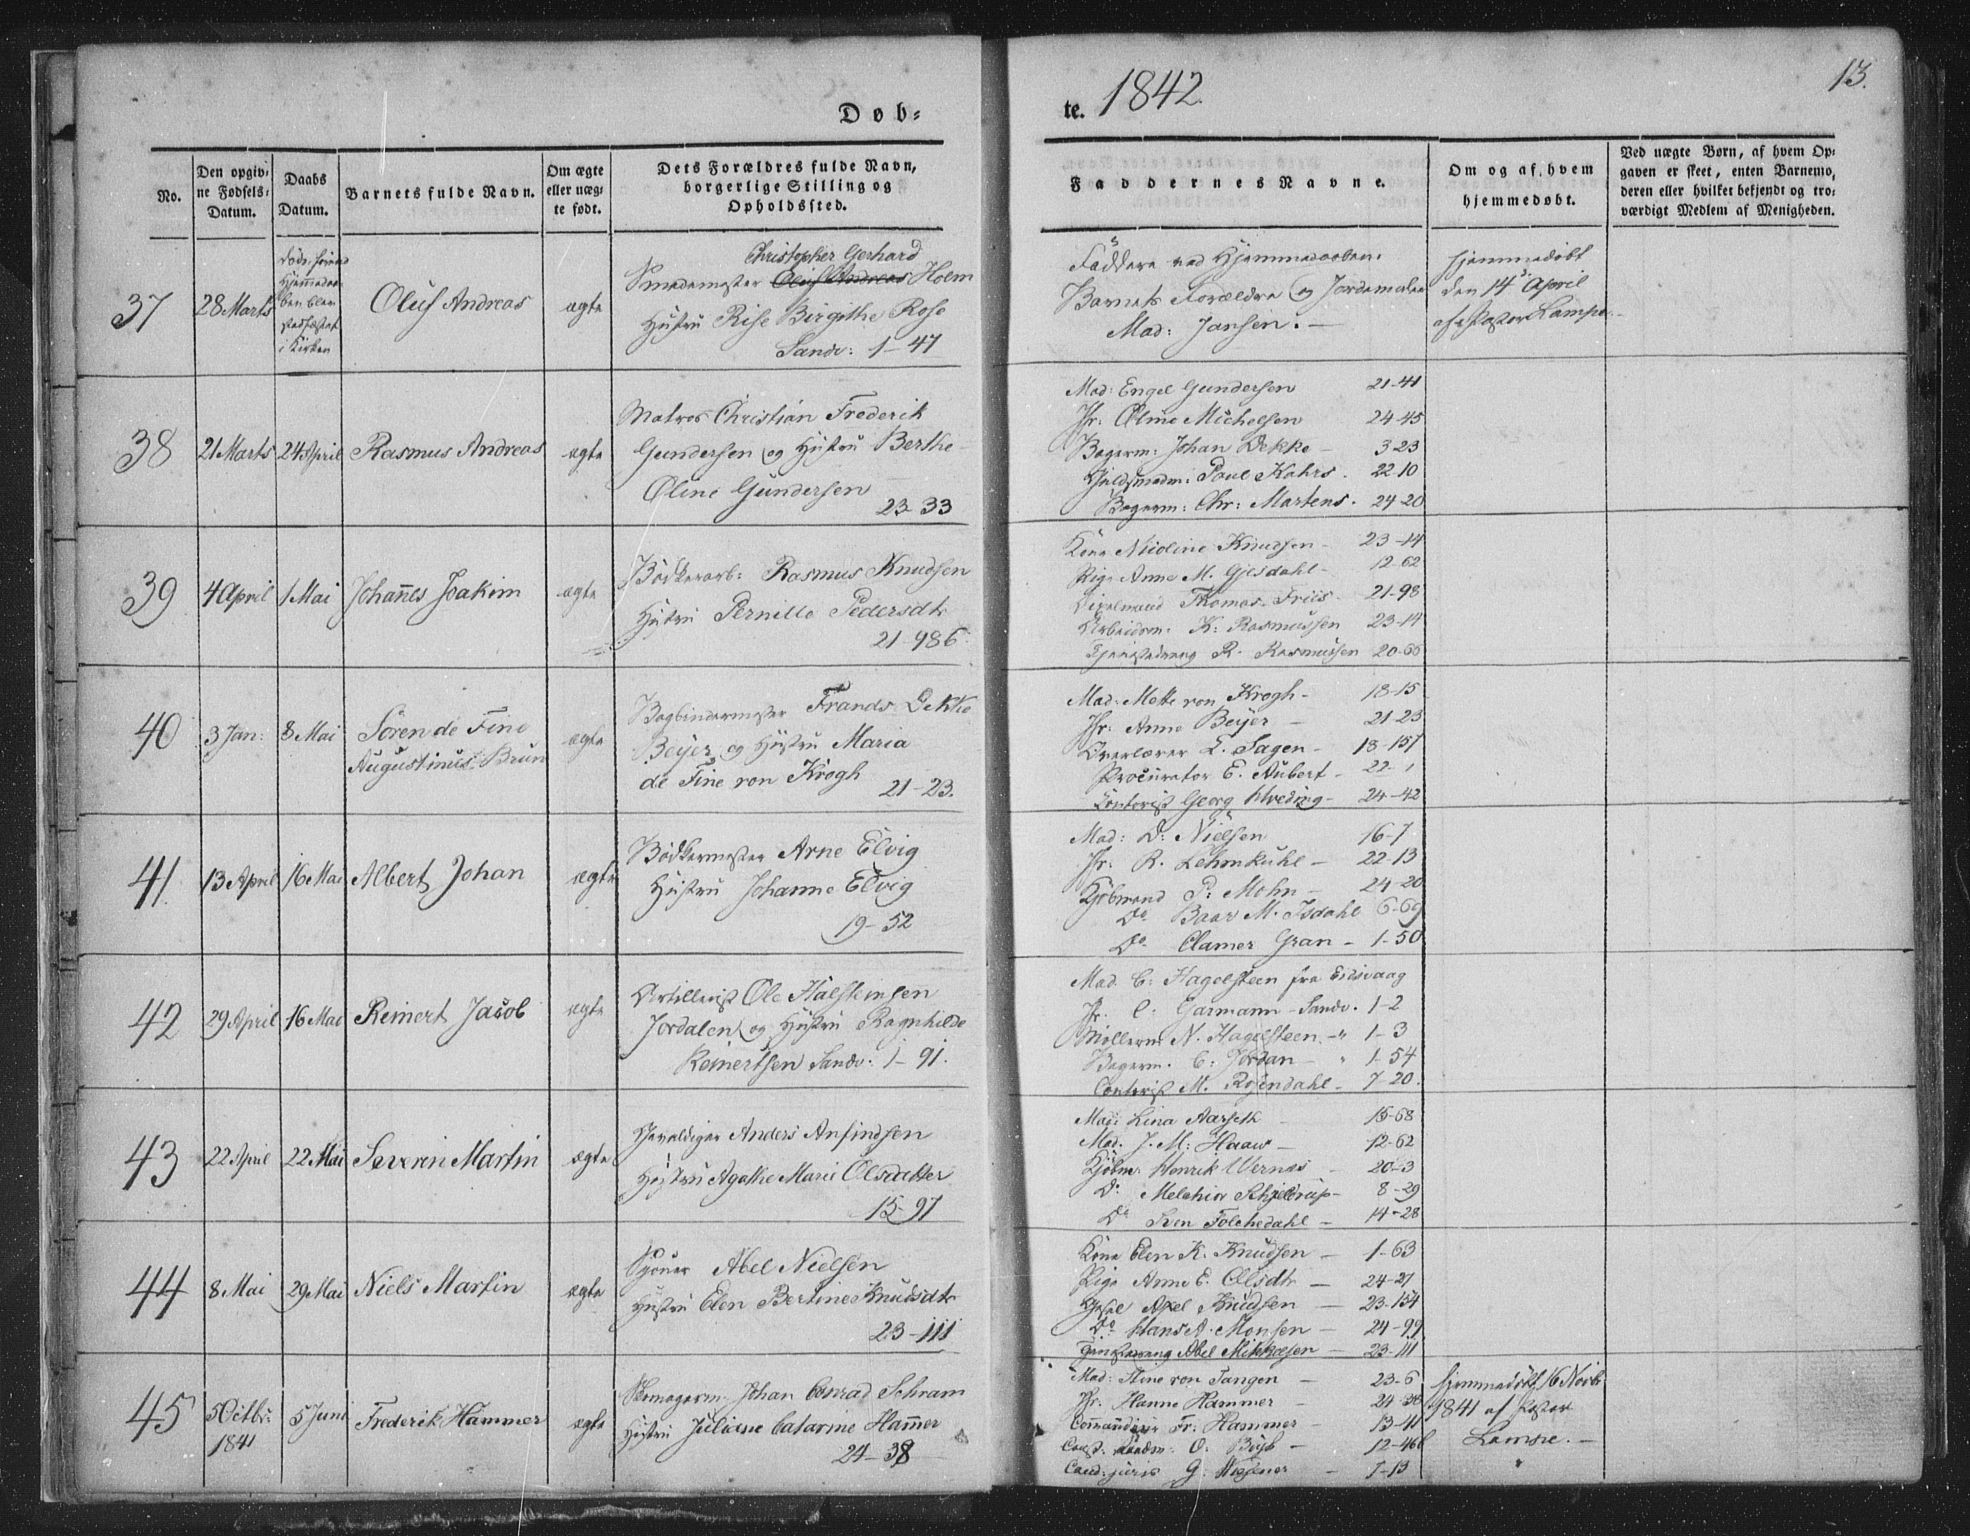 Døb=
te. 1842.
13.
No.
Den opgiv=
ne Fødsels=
Datum.
Daabs
Datum.
Barnets fulde Navn.
Om ægte
eller uæg=
te født.
Dets Forældres fulde Navn,
borgerlige Stilling og
Opholdssted.
Faddernes Navne.
Om og af hvem
hjemmedøbt.
Ved uægte Børn, af hvem Op=
gaven er skeet, enten Barnemo=
deren eller hvilket bekjendt og tro=
værdigt Medlem af Menigheden.
37
28 Marts
i Kirken
Oluf Andreas
ægte
Christopher Gerhard
Smedemester Oluf Andreas Holm
Hustru Rise Birgithe Rose
Sandv: 1-47
Faddere ved Hjemmedaaben:
Barnets Forældre og Jordemoder
Mad: Jansen. —
Hjemmedøbt
den 14 April
af Pastor Lampe.
38
21 Marts
24 April
Rasmus Andreas
ægte
Matros Christian Frederik
Gundersen og Hustru Berthe
Oline Gundersen
23-33
Mad: Engel Gundersen 21-41
Jfr: Oline Michelsen 24-45
Bagerm: Johan Dekke - 3-23
Guldsmedm: Poul Kahrs. 22-10
Bagerm: Chr: Martens. 24-20
39
4 April
1 Mai
Johannes Joakim
ægte
Bødkerarb: Rasmus Knudsen
Hustru Pernille Pedersdtr
21-986
Kone Nicoline Knudsen - 23-14
Pige Anne M. Gjesdahl - 12-62
Thomas Friis - 21-98
Arbeidsm. K: Rasmussen 23-14
R. Rasmussen 20-66
40
3 Jan:
8 Mai
Søren de Fine
Augustinus Brun
ægte
Bogbindermester Frands Dekke
Beyer og Hustru Maria
de Fine von Krogh 21-23.
Mad: Mette von Krogh - 18-15
Jfr: Anne Beyer - 21-23
Overlærer L. Sagen - 18-157
Procurator E. Aubert - 22-1
Contorist Georg Hveding - 24-42
41
13 April
16 Mai
Albert Johan
ægte
Bødkermester Arne Elvig
Hustru Johanne Elvig
19-52
Mad: D: Nielsen 16-7
Jfr: R. Lehmkuhl - 22-13
Kjøbmand P: Mohn - 24-20
Do Baar M. Isdahl 6-69
Do Clamer Gran - 1-50
42
29 April
16 Mai
Reinert Jacob
ægte
Artillerist Ole Halsteinsen
Jordalen og Hustru Ragnhilde
Reinertsen Sandv: 1-91.
Mad. C: Hagelsteen fra Eidsvaag
Jfr. C: Garmann - Sandv. 1-2
Møllerm. N. Hagelsteen - " 1-3
Bagerm. C: Jordan - " 1-54
Contorist M. Rosendahl - 7-20.
43
22 April
22 Mai
Severin Martin
ægte
Gevaldiger Anders Anfindsen
Hustru Agathe Marie Olsdatter
15-97
Mad: Lina Aarseth 15-68
Mad. J. M: Haaw - 12-62
Kjøbm: Henrik Wernøs - 20-3
Do Melchior Schjelderup - 8-29
Do Sven Folchedahl - 14-28
44
8 Mai
29 Mai
Niels Martin
ægte
Abel Nielsen
Hustru Elen Bertine Knudsdtr
23-111
Kone Elen K. Knudsen - 1-63
Pige Anne E. Olsdtr - 24-27
Axel Knudsen - 23-154
Do Hans A. Monsen - 24-99
Abel Mikkelsen - 23-111
45
5 Octbr:
1841
5 Juni
Frederik Hammer
ægte
Skomagerm. Johan Conrad Schram
Hustru Juliane Catarine Hammer
24-38
Mad: Stine von Tangen - 23-6
Jfr: Hanne Hammer - 24-38
Commandeur Fr: Hammer - 13-11
12-46
Cand: juris G: Wesener - 7-13
Hjemmedøbt 16 Novbr
1841 af Pastor
Lampe. —